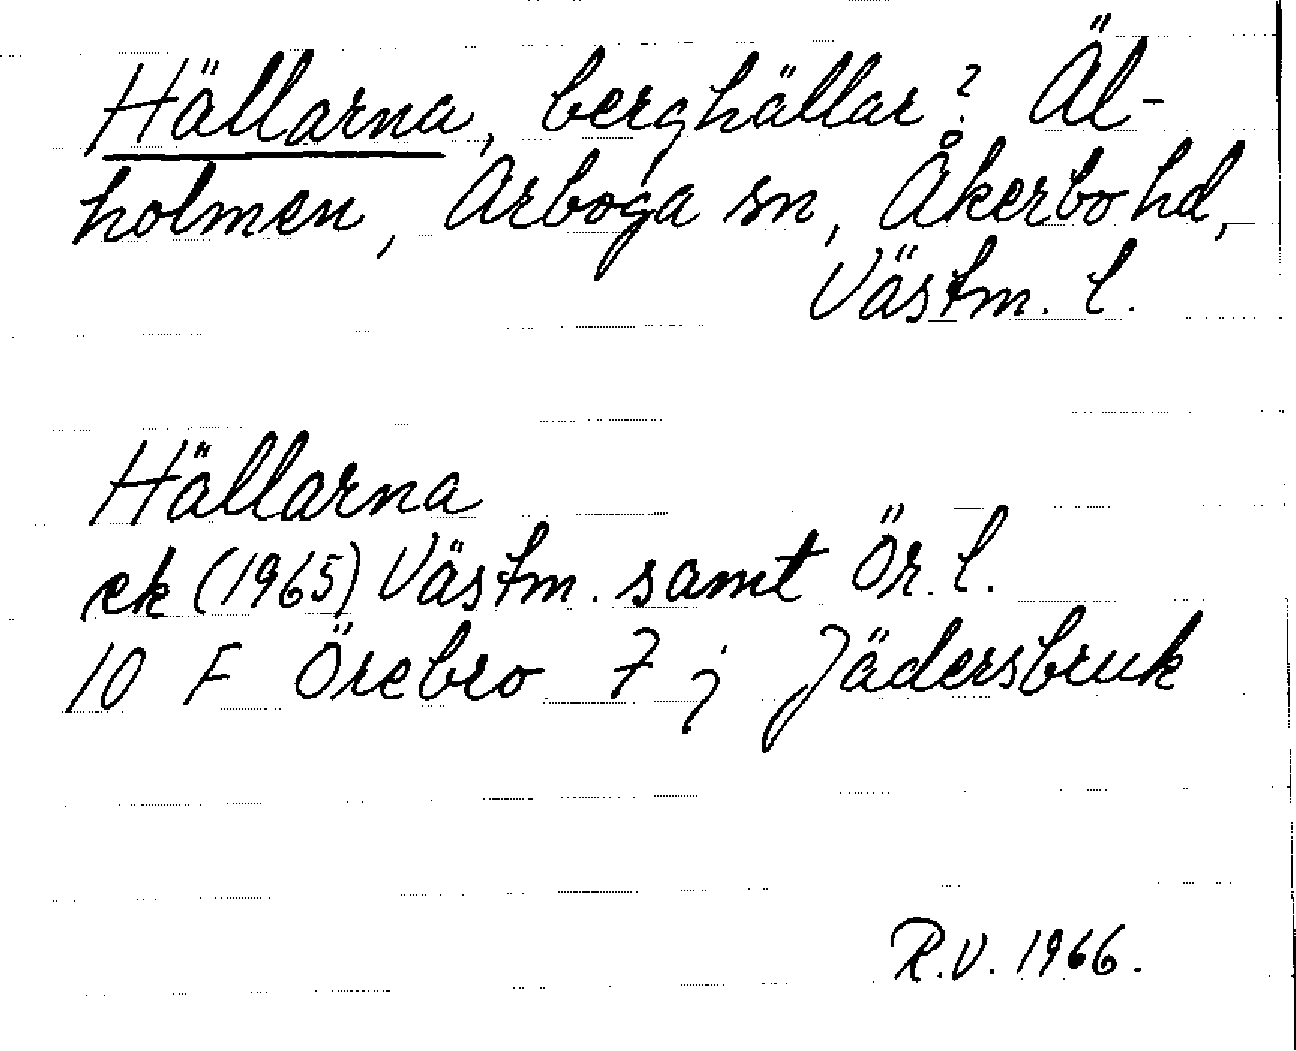 Hällarna, berghällar? Äl-
holmen, Arboga sn, Åkerbo hd,
Västm. l.
Hällarna
ek (1965) Västm. samt Ör. l.
10 F Örebro 7 j Jädersbruk
R.V. 1966.